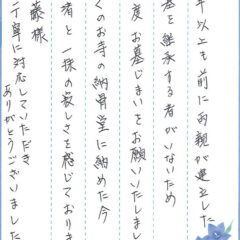 年以上も前に両親が建立した
墓を継承する者がいないため
度 お墓じまいをお願いいたしまし
くのお寺の納骨堂に納めた今
者と一抹の寂しさを感じておりま
藤様
丁寧に対応していただき
ありがとうございました